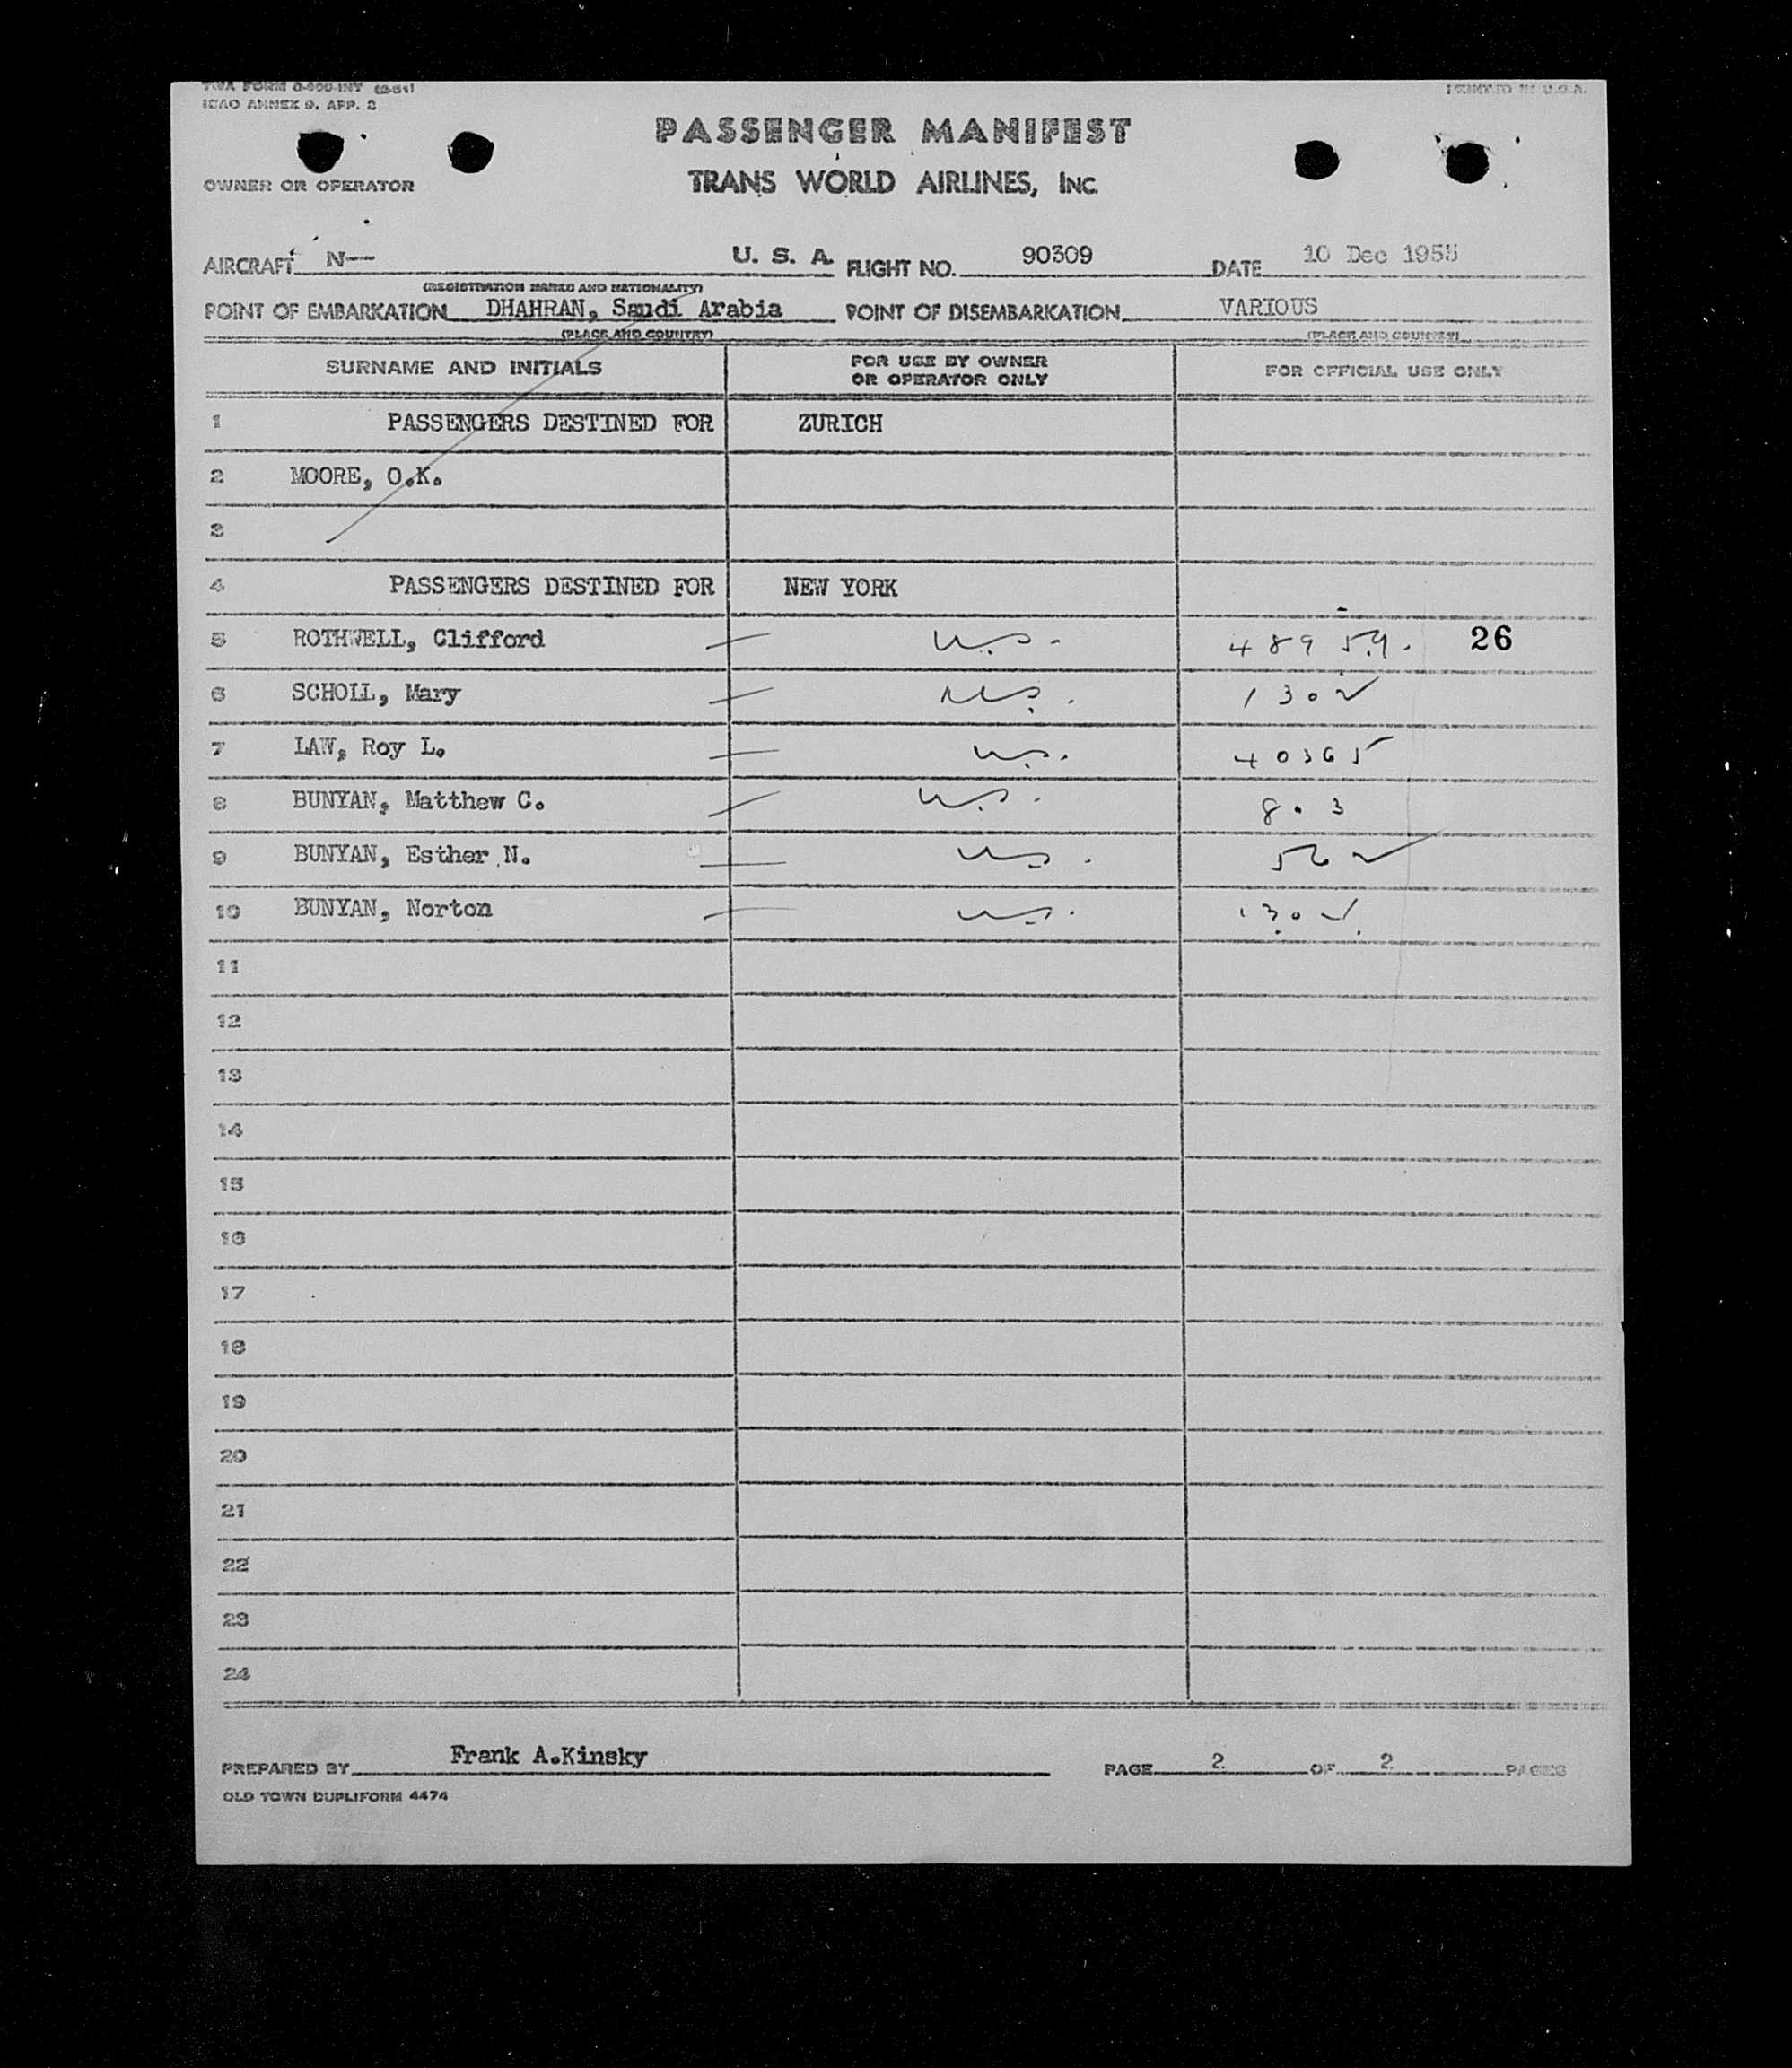 TWA FORM O-800-INT (2-51)
ICAO ANNEX 9, APP. 2
PRINTED IN U.S.A.
PASSENGER MANIFEST
OWNER OR OPERATOR
TRANS WORLD AIRLINES, INC.
AIRCRAFT N-- U. S. A. FLIGHT NO. 90309 DATE 10 Dec 1955
(REGISTRATION MARKS AND NATIONALITY)
POINT OF EMBARKATION DHAHRAN, Saudi Arabia POINT OF DISEMBARKATION VARIOUS
(PLACE AND COUNTRY) (PLACE AND COUNTRY)
SURNAME AND INITIALS FOR USE BY OWNER OR OPERATOR ONLY FOR OFFICIAL USE ONLY
1 PASSENGERS DESTINED FOR ZURICH
2 MOORE, O.K.
3
4 PASSENGERS DESTINED FOR NEW YORK
5 ROTHWELL, Clifford U.S. 26
6 SCHOLL, Mary U.S.
7 LAW, Roy L. U.S. 40365
8 BUNYAN, Matthew C. U.S.
9 BUNYAN, Esther N. U.S.
10 BUNYAN, Norton U.S.
11
12
13
14
15
16
17
18
19
20
21
22
23
24
PREPARED BY Frank A.Kinsky PAGE 2 OF 2 PAGES
OLD TOWN DUPLIFORM 4474